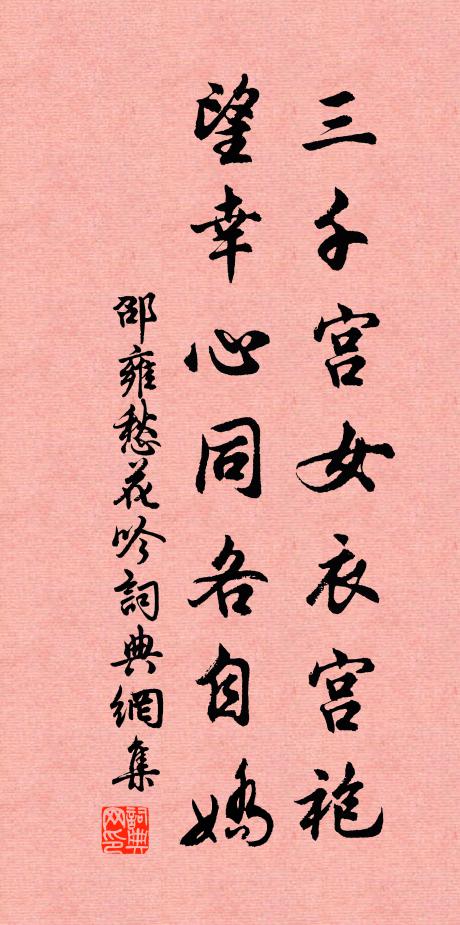 三千宫女衣宫袍
望幸心同各自娇
邵雍愁花吟詞典網集
詞典网印